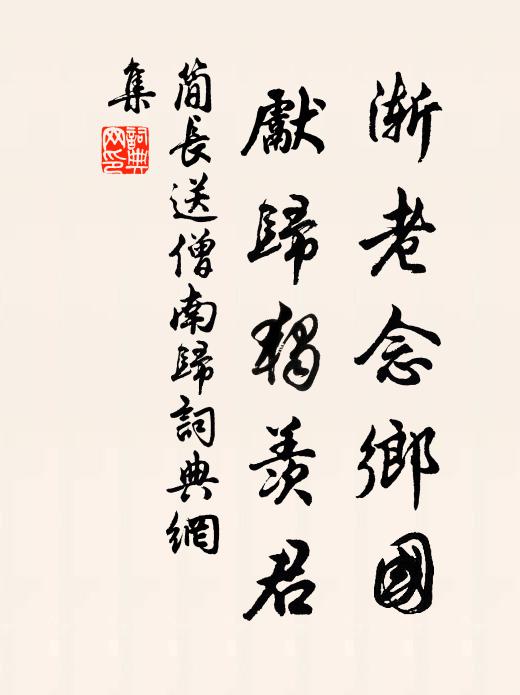 漸老念鄉國
獻歸獨羨君
簡長送僧南歸詞典網
集
詞典
网印